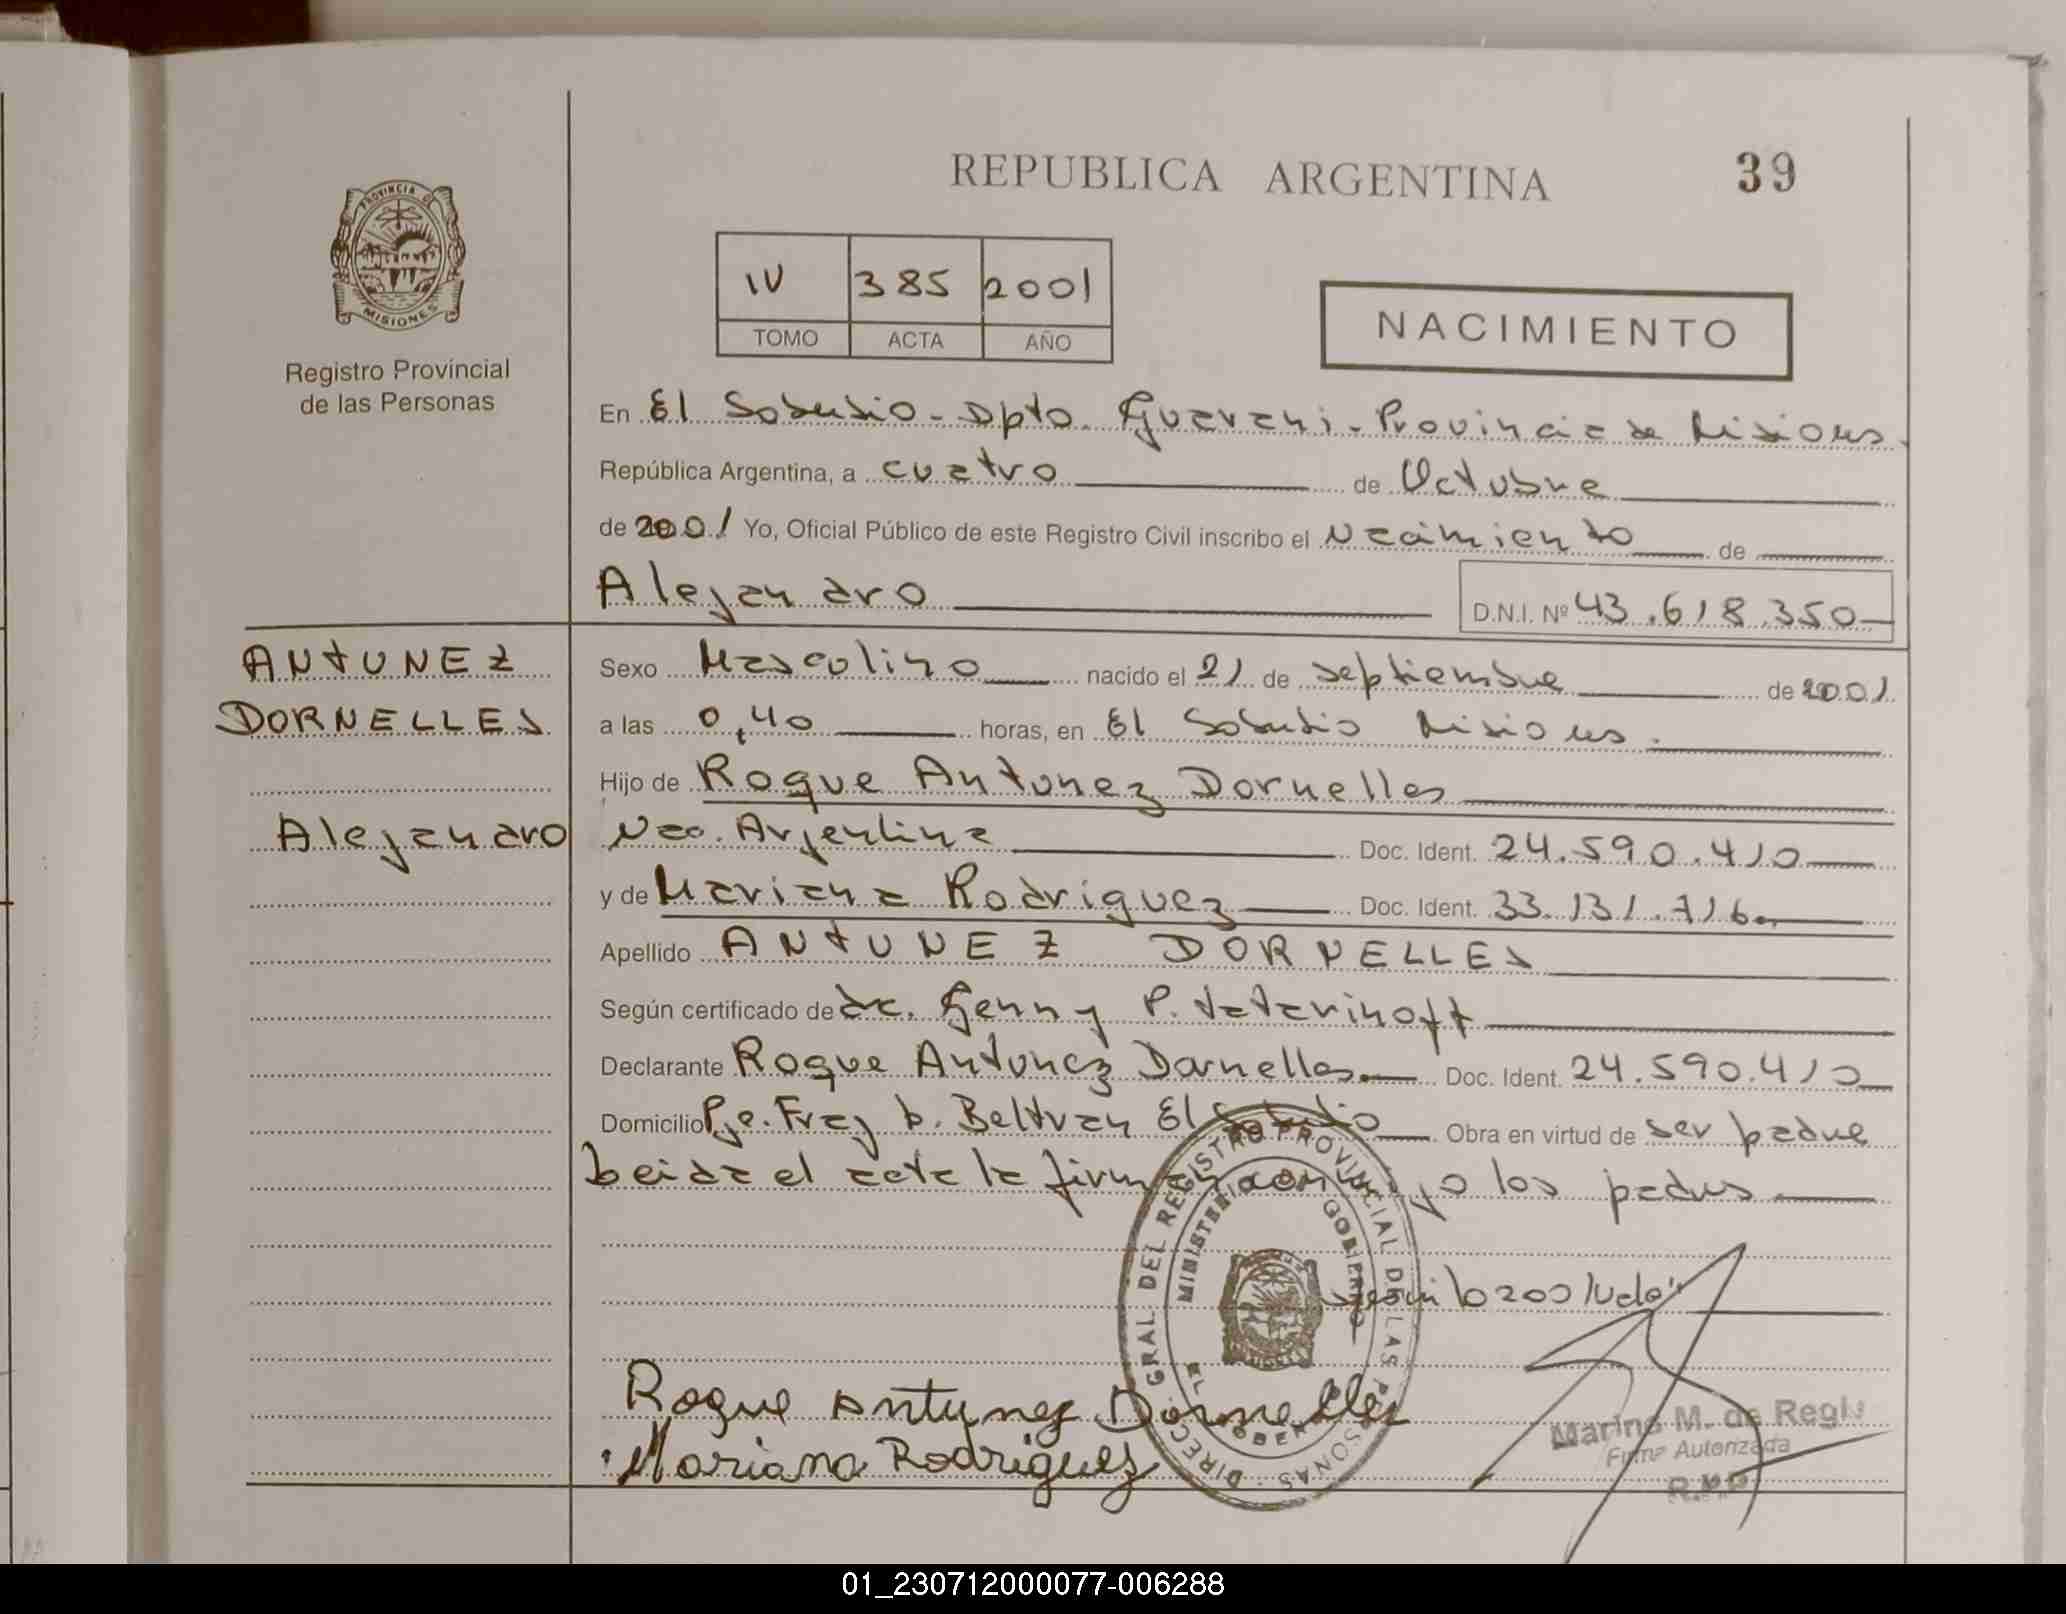 REPUBLICA ARGENTINA
39
PROVINCIA DE
MISIONES
Registro Provincial
de las Personas
IV 385 2001
TOMO ACTA AÑO
NACIMIENTO
En El Soberbio - Dpto. Guarani - Provincia de Misiones.
República Argentina, a cuatro de Octubre
de 2001 Yo, Oficial Público de este Registro Civil inscribo el Nacimiento de
Alejandro D.N.I. Nº 43.618.350
ANTUNEZ
DORNELLES
Alejandro
Sexo Masculino nacido el 21 de septiembre de 2001
a las 0,40 horas, en El Soberbio Misiones.
Hijo de Roque Antunez Dornelles
Nac. Argentina Doc. Ident. 24.590.410
y de Mariana Rodriguez Doc. Ident. 33.131.716
Apellido ANTUNEZ DORNELLES
Según certificado de dr. Genny P. Tatarinoff
Declarante Roque Antunez Dornelles Doc. Ident. 24.590.410
Domicilio Pje. Fray L. Beltran El Soberbio Obra en virtud de ser padre
Leida el acta la firman conmigo los padres
Roque Antunez Dornelles
Mariana Rodriguez
DIRECC. GRAL. DEL REGISTRO PROVINCIAL DE LAS PERSONAS
MINISTERIO GOBIERNO
EL SOBERBIO
Marina M. de Regis
Firma Autorizada
R.P.P.
01_230712000077-006288